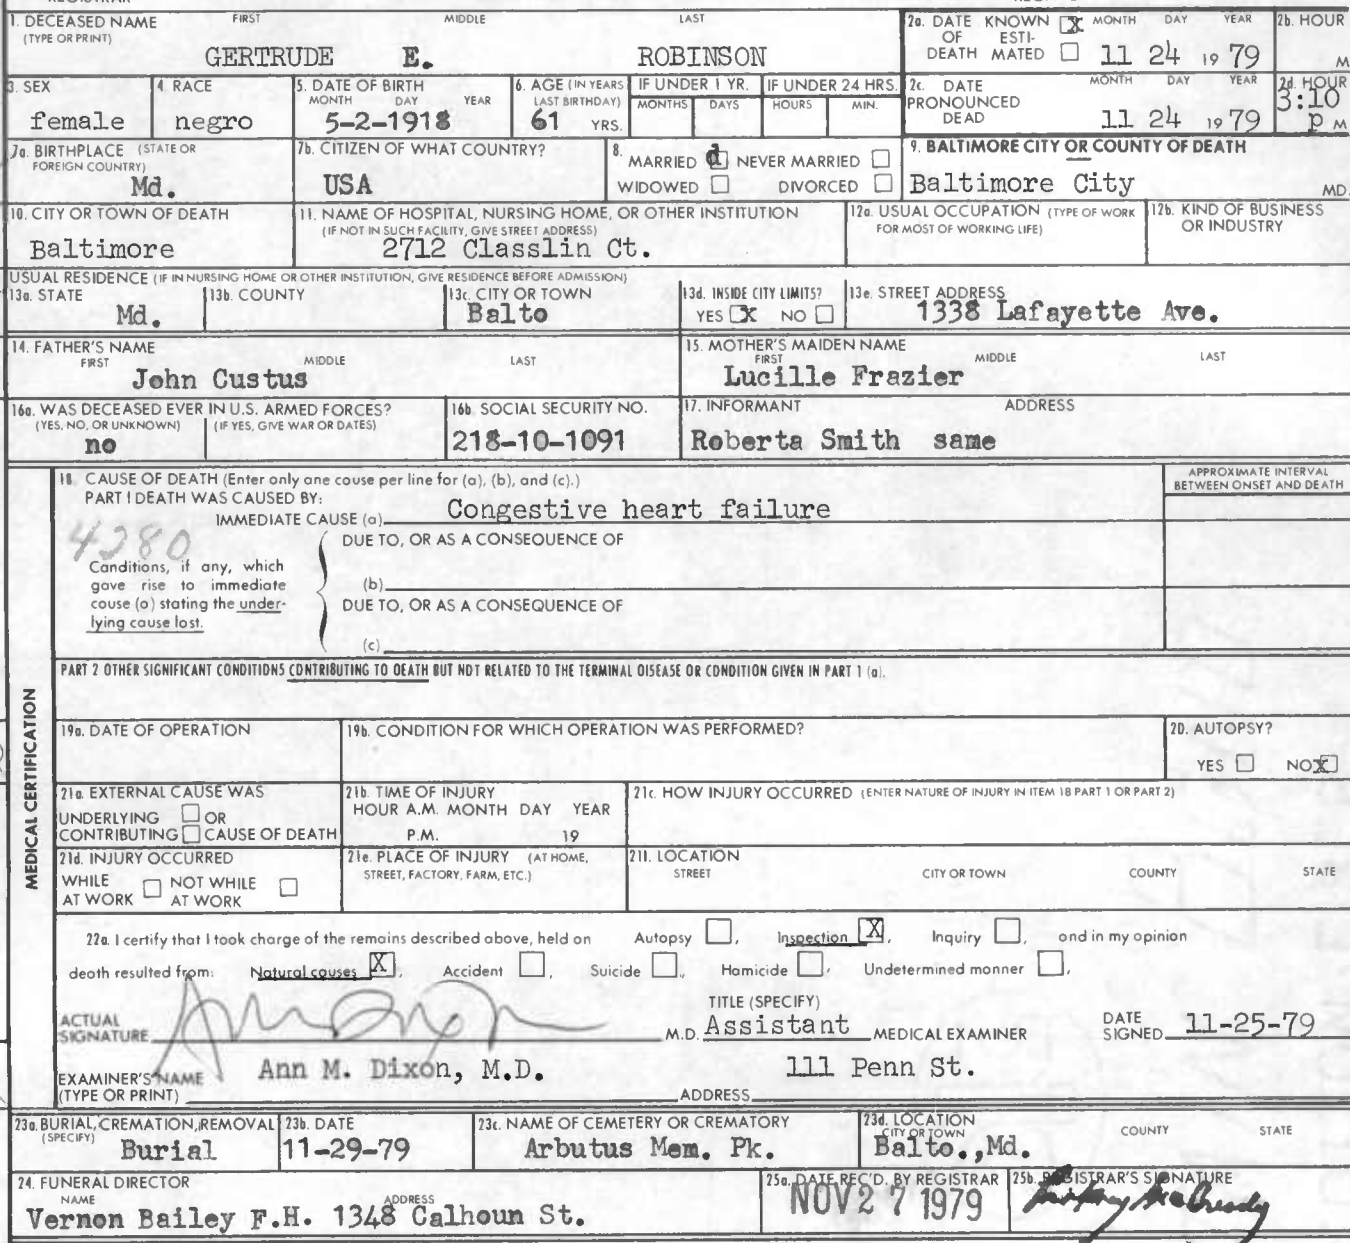 1. DECEASED NAME FIRST MIDDLE LAST
(TYPE OR PRINT)
GERTRUDE E. ROBINSON
2a. DATE KNOWN X MONTH DAY YEAR
OF ESTI-
DEATH MATED 11 24 19 79
2b. HOUR
M
3. SEX
female
4. RACE
negro
5. DATE OF BIRTH
MONTH DAY YEAR
5-2-1918
6. AGE (IN YEARS
LAST BIRTHDAY)
61 YRS.
IF UNDER 1 YR.
MONTHS DAYS
IF UNDER 24 HRS.
HOURS MIN.
2c. DATE MONTH DAY YEAR
PRONOUNCED
DEAD 11 24 19 79
2d. HOUR
3:10
P M
7a. BIRTHPLACE (STATE OR
FOREIGN COUNTRY)
Md.
7b. CITIZEN OF WHAT COUNTRY?
USA
8.
MARRIED d NEVER MARRIED
WIDOWED DIVORCED
9. BALTIMORE CITY OR COUNTY OF DEATH
Baltimore City MD.
10. CITY OR TOWN OF DEATH
Baltimore
11. NAME OF HOSPITAL, NURSING HOME, OR OTHER INSTITUTION
(IF NOT IN SUCH FACILITY, GIVE STREET ADDRESS)
2712 Classlin Ct.
12a. USUAL OCCUPATION (TYPE OF WORK
FOR MOST OF WORKING LIFE)
12b. KIND OF BUSINESS
OR INDUSTRY
USUAL RESIDENCE (IF IN NURSING HOME OR OTHER INSTITUTION, GIVE RESIDENCE BEFORE ADMISSION)
13a. STATE
Md.
13b. COUNTY
13c. CITY OR TOWN
Balto
13d. INSIDE CITY LIMITS?
YES X NO
13e. STREET ADDRESS
1338 Lafayette Ave.
14. FATHER'S NAME
FIRST MIDDLE LAST
John Custus
15. MOTHER'S MAIDEN NAME
FIRST MIDDLE LAST
Lucille Frazier
16a. WAS DECEASED EVER IN U.S. ARMED FORCES?
(YES, NO, OR UNKNOWN) (IF YES, GIVE WAR OR DATES)
no
16b. SOCIAL SECURITY NO.
218-10-1091
17. INFORMANT ADDRESS
Roberta Smith same
MEDICAL CERTIFICATION
18. CAUSE OF DEATH (Enter only one cause per line for (a), (b), and (c).)
PART I DEATH WAS CAUSED BY:
IMMEDIATE CAUSE (a) Congestive heart failure
APPROXIMATE INTERVAL
BETWEEN ONSET AND DEATH
4280
DUE TO, OR AS A CONSEQUENCE OF
Conditions, if any, which
gave rise to immediate
cause (a) stating the under-
lying cause last.
(b)
DUE TO, OR AS A CONSEQUENCE OF
(c)
PART 2 OTHER SIGNIFICANT CONDITIONS CONTRIBUTING TO DEATH BUT NOT RELATED TO THE TERMINAL DISEASE OR CONDITION GIVEN IN PART 1 (a).
19a. DATE OF OPERATION
19b. CONDITION FOR WHICH OPERATION WAS PERFORMED?
20. AUTOPSY?
YES NO X
21a. EXTERNAL CAUSE WAS
UNDERLYING OR
CONTRIBUTING CAUSE OF DEATH
21b. TIME OF INJURY
HOUR A.M. MONTH DAY YEAR
P.M. 19
21c. HOW INJURY OCCURRED (ENTER NATURE OF INJURY IN ITEM 18 PART 1 OR PART 2)
21d. INJURY OCCURRED
WHILE NOT WHILE
AT WORK AT WORK
21e. PLACE OF INJURY (AT HOME,
STREET, FACTORY, FARM, ETC.)
21f. LOCATION
STREET CITY OR TOWN COUNTY STATE
22a. I certify that I took charge of the remains described above, held on Autopsy , Inspection X , Inquiry , and in my opinion
death resulted from: Natural causes X , Accident , Suicide , Homicide , Undetermined manner ,
ACTUAL
SIGNATURE
TITLE (SPECIFY)
M.D. Assistant MEDICAL EXAMINER
DATE
SIGNED 11-25-79
EXAMINER'S NAME
(TYPE OR PRINT)
Ann M. Dixon, M.D.
ADDRESS
111 Penn St.
23a. BURIAL, CREMATION, REMOVAL
(SPECIFY) Burial
23b. DATE
11-29-79
23c. NAME OF CEMETERY OR CREMATORY
Arbutus Mem. Pk.
23d. LOCATION
CITY OR TOWN COUNTY STATE
Balto., Md.
24. FUNERAL DIRECTOR
NAME ADDRESS
Vernon Bailey F.H. 1348 Calhoun St.
25a. DATE REC'D. BY REGISTRAR
NOV 27 1979
25b. REGISTRAR'S SIGNATURE